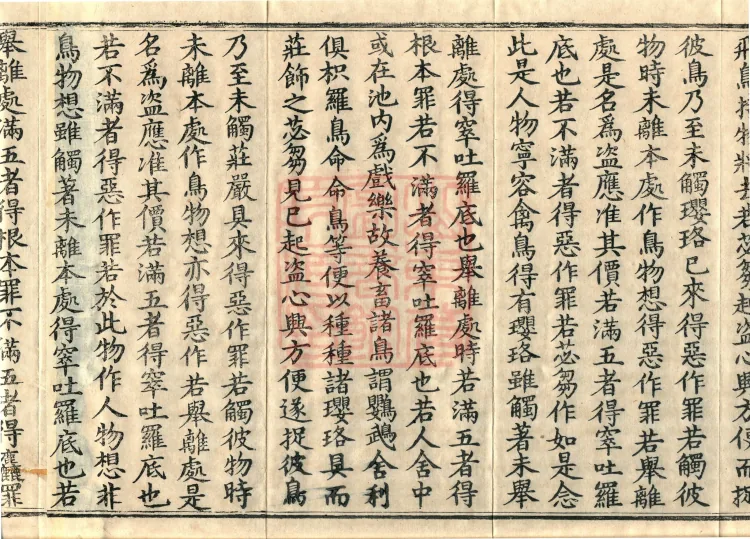 飛鳥持物將去若苾芻起盜心興方便而捉
彼鳥乃至未觸瓔珞已來得惡作罪若觸彼
物時未離本處作鳥物想得惡作罪若舉離
處是名為盜應准其價若滿五者得窣吐羅
底也若不滿者得惡作罪若苾芻作如是念
此是人物寧容禽鳥得有瓔珞雖觸著未舉
離處得窣吐羅底也舉離處時若滿五者得
根本罪若不滿者得窣吐羅底也若人舍中
或在池內為戲樂故養畜諸鳥謂鸚鵡舍利
俱枳羅鳥命命鳥等便以種種諸瓔珞具而
莊飾之苾芻見已起盜心興方便遂捉彼鳥
乃至未觸莊嚴具來得惡作罪若觸彼物時
未離本處作鳥物想亦得惡作若舉離處是
名為盜應准其價若滿五者得窣吐羅底也
若不滿者得惡作罪若於此物作人物想非
鳥物想雖觸著未離本處得窣吐羅底也若
舉離處滿五者得根本罪不滿五者得麁罪